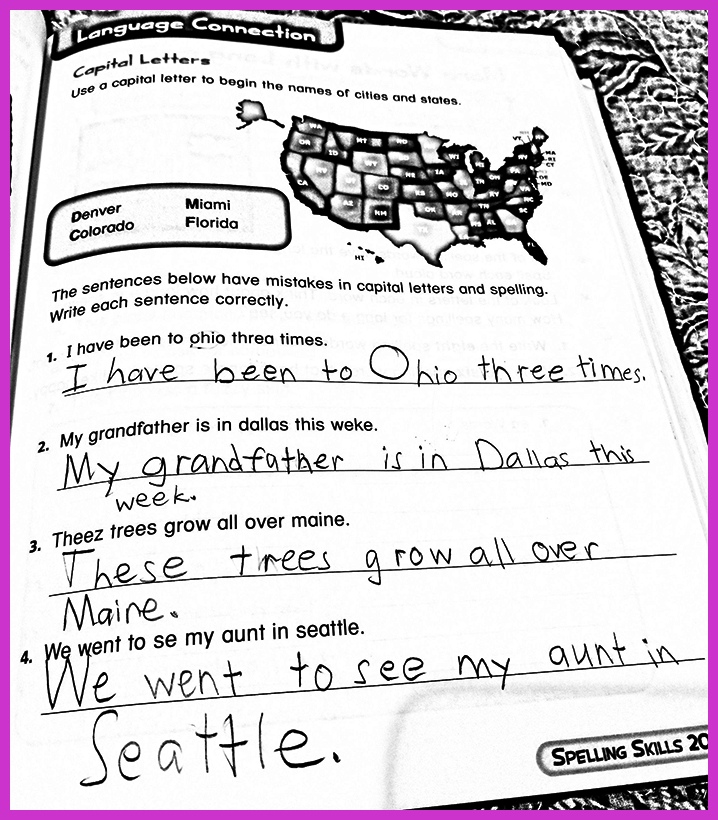 Language Connection
Capital Letters
Use a capital letter to begin the names of cities and states.
WA
OR
MT
ND
ID
WY
WI
NV
CA
CO
NE
IA
AZ
NM
KS
MO
OK
AR
TN
KY
IN
OH
PA
NY
VA
NC
SC
VT
MA
RI
CT
DE
MD
TX
FL
HI
Denver Miami
Colorado Florida
The sentences below have mistakes in capital letters and spelling.
Write each sentence correctly.
1. I have been to ohio threa times.
I have been to Ohio three times.
2. My grandfather is in dallas this weke.
My grandfather is in Dallas this
week.
3. Theez trees grow all over maine.
These trees grow all over
Maine.
4. We went to se my aunt in seattle.
We went to see my aunt in
Seattle.
SPELLING SKILLS 20